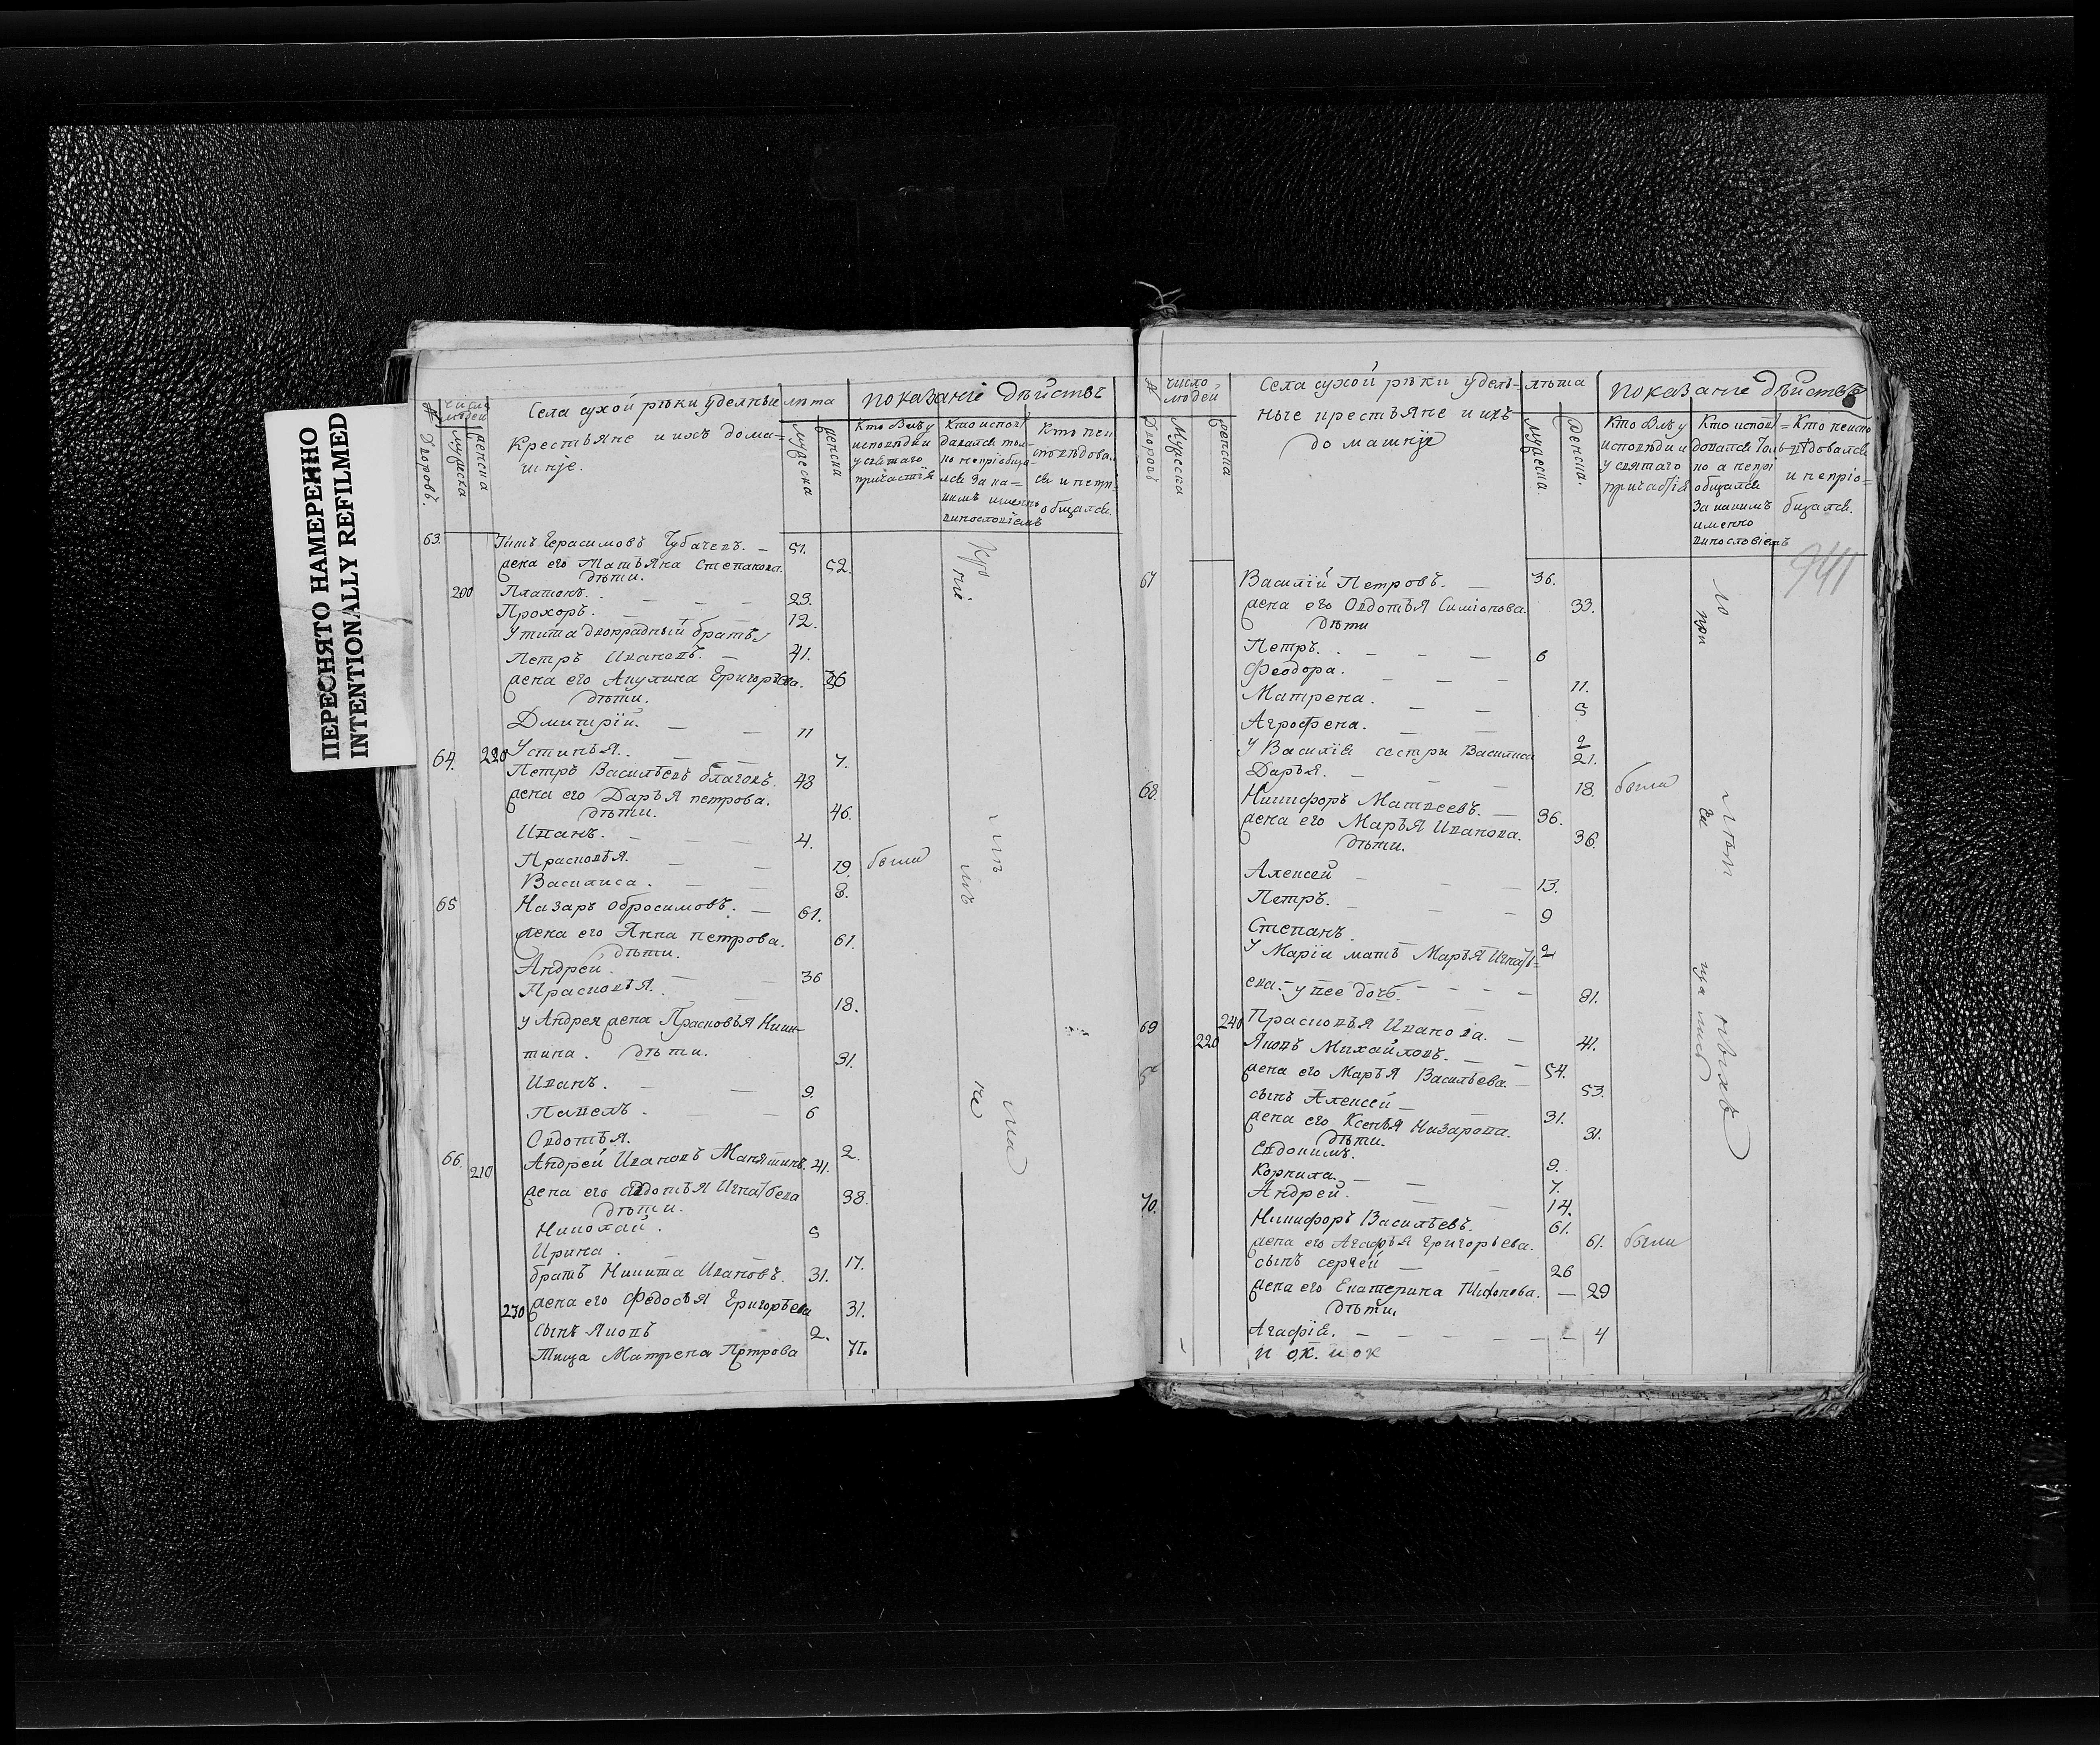 ПЕРЕСНЯТО НАМЕРЕННО
INTENTIONALLY REFILMED
№ Дворовъ.
Число людей
Мужеска
женска
Села сухой рѣки уделныи
Крестьяне и ихъ дома=
шнје.
лѣта
Мужеска
женска
показанiе дѣйствъ
Кто былъ у
исповѣди и
у святаго
причастїя
Кто испо
давался тол-
ко непріобща-
лся за ка=
кимъ именно
винословїемъ
Кто неи
сповѣдова.
ся и непр=
общался.
63. Титъ Герасимовъ Чубачевъ. 51.
жена его Татьяна Степанова. 52.
дѣти.
200 Платонъ. 23.
Прохоръ. 12.
У тита двоюрадный братъ
Петръ Ивановъ. 41.
жена его Акулина Григорьева. 36
дѣти.
Дмитрїй. 11
220 Устинья. 7.
64. Петръ Васильевъ благовъ. 48
жена его Дарья петрова. 46.
дѣти.
Иванъ. 4.
Прасковья. 19. были
Василиса. 8.
65 Назаръ обросимовъ. 61.
жена его Анна петрова. 61.
дѣти.
Андрей. 36
Прасковья. 18.
у Андрея жена Прасковья Ники-
тина. дѣти. 31.
Иванъ. 9.
Павелъ. 6
Овдотья. 2.
66. 210 Андрей Ивановъ Манятинъ. 41.
жена его Овдотья Игнатьева 38.
дѣти.
Николай. 5
Ирина. 17.
братъ Никита Ивановъ. 31.
230 жена его Федосья Григорьева 31.
сынъ Яковъ 2.
Тища Матрена Петрова 71.
№ Дворовъ
число людей
Мужеска
женска
Села сухой рѣки удель-
ные крестьяне и ихъ
домашнје
лѣта
Мужеска.
Женска.
показанiе дѣйствъ
Кто былъ у
исповѣди и
у святаго
причастїя
Кто испов=
довался толь-
ко а непрі
общался
За какимъ
именно
винословїемъ
Кто неиспо
вѣдовался
и непріо=
бщался.
941
67 Василїй Петровъ. 36.
жена его Овдотья Симіонова. 33.
дѣти
Петръ. 6
Феодора. 11.
Матрена. 5
Агрофена. 2
У Василїя сестры Василиса 21.
Дарья. 18. были
68. Никифоръ Матвеевъ. 36.
жена его Марья Иванова. 36.
дѣти.
Алексей 13.
Петръ. 9
Степанъ. 2
У Марїи мать Марья Игнать=
ева. у нее дочь. 81.
240 Прасковья Иванова. 41.
69 220 Яковъ Михайловъ. 54.
жена его Марья Васильева 53.
сынъ Алексей 31.
жена его Ксенья Назарова. 31.
дѣти.
Евдокимъ. 9.
Корнила. 7.
Андрей. 14.
70. Никифоръ Васильевъ. 61.
жена его Агафья Григорьева. 61. были
сынъ сергей 26
жена его Екатерина Тихонова. 29
дѣти.
Агафїя. 4